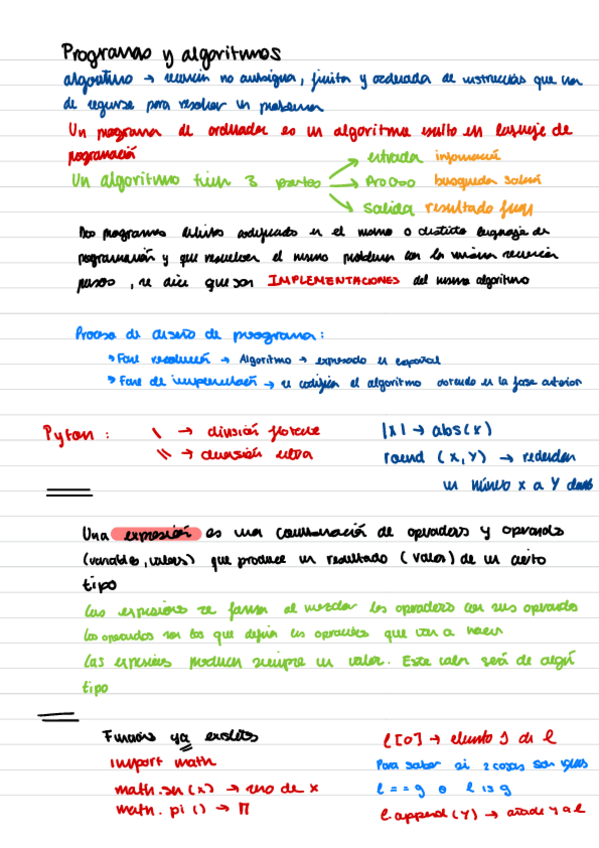 Programas y algoritmos
algoritmo → no ambigua, finita y ordenada de instrucciones que
de seguirse para resolver un problema
Un programa de ordenador es un algoritmo escrito en lenguaje de
programación
Un algoritmo tien 3 partes → entrada información
→ Proceso busqueda
→ salida resultado
Dos programas codificado en el mismo o distinto lenguaje de
programación y que resuelven el mismo problema con la misma
pasos, se dice que son IMPLEMENTACIONES del mismo algoritmo
Proceso de diseño de programa:
Fase resolución → Algoritmo → expresado en español
Fase de → se codifica el algoritmo en la fase anterior
Pyton: \ → división flotante
\\ → división entera
|x| → abs(x)
round (x,y) → redondear
un número x a Y
Una expresión es una combinación de operadores y operandos
(variables, valores) que produce un resultado (valor) de un cierto
tipo
Las expresiones se forman al mezclar los operadores con sus operandos
Los operandos son los que las que van a hacer
Las expresiones producen siempre un valor. Este valor será de algún
tipo
Funciones ya
import math
math.sn(x) → de x
math. pi () → π
l[0] → elemento 1 de l
Para saber si 2 cosas son iguales
l == g o l is g
l.append(Y) → añade y a l